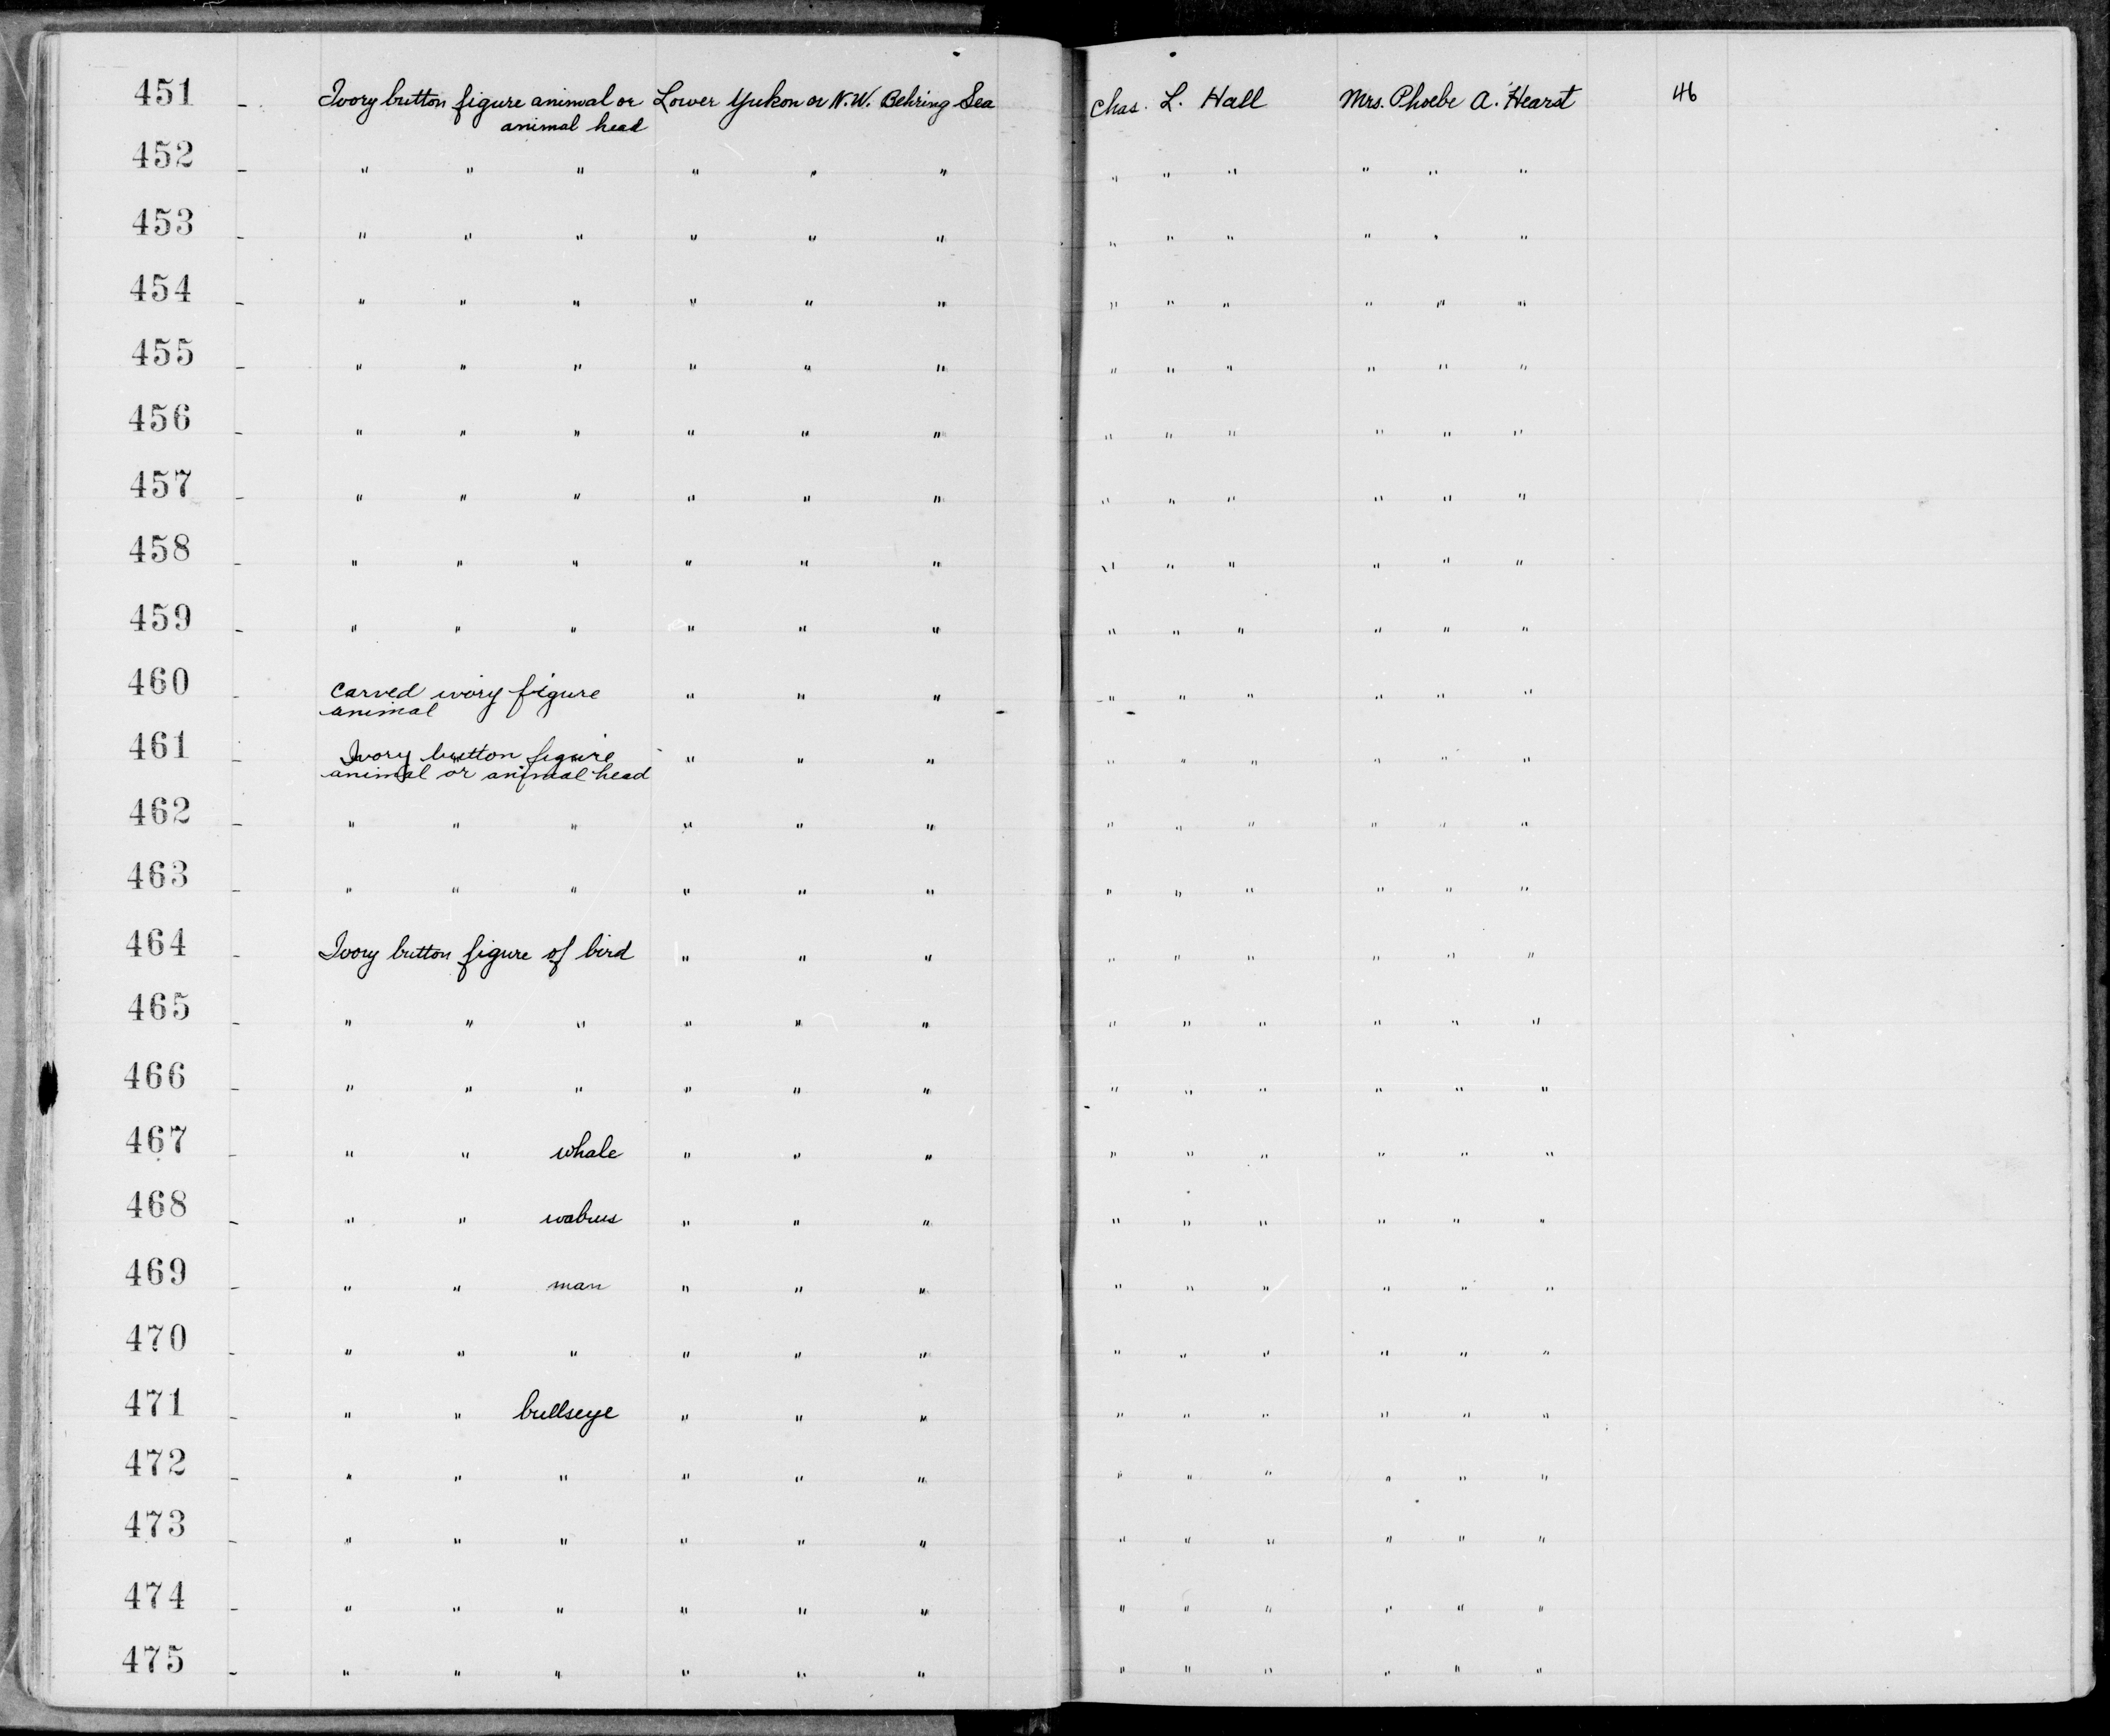 451 - Ivory button figure animal or Lower Yukon or N.W. Behring Sea Chas. L. Hall Mrs. Phoebe A. Hearst 46
animal head
452 - " " " " " " " " " " " "
453 - " " " " " " " " " " " "
454 - " " " " " " " " " " " "
455 - " " " " " " " " " " " "
456 - " " " " " " " " " " " "
457 - " " " " " " " " " " " "
458 - " " " " " " " " " " " "
459 - " " " " " " " " " " " "
460 - Carved ivory figure " " " " " " " " "
animal
461 - Ivory button figure " " " " " " " " "
animal or animal head
462 - " " " " " " " " " " " "
463 - " " " " " " " " " " " "
464 - Ivory button figure of bird " " " " " " " " "
465 - " " " " " " " " " " " "
466 - " " " " " " " " " " " "
467 - " " whale " " " " " " " " "
468 - " " walrus " " " " " " " " "
469 - " " man " " " " " " " " "
470 - " " " " " " " " " " " "
471 - " " bullseye " " " " " " " " "
472 - " " " " " " " " " " " "
473 - " " " " " " " " " " " "
474 - " " " " " " " " " " " "
475 - " " " " " " " " " " " "